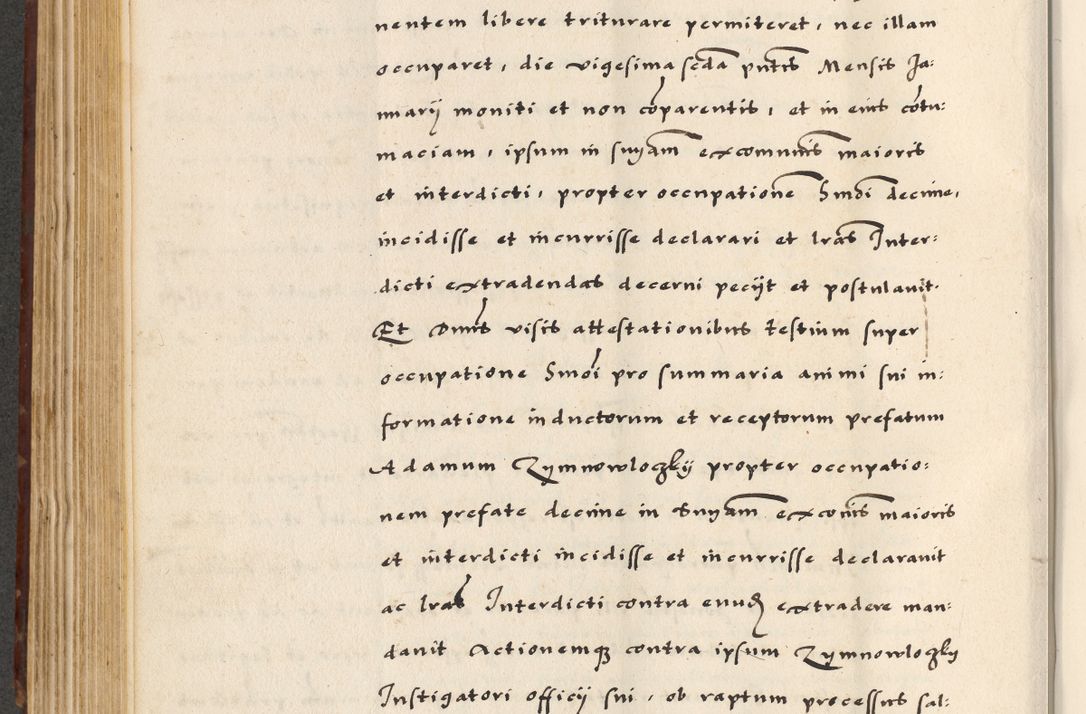 nentem libere triturare permiteret, nec illam
occuparet, die vigesima scda pntis Mensis Ja-
nuarij moniti et non coparentis, et in eius cotu-
maciam, ipsum in snyam excomunis maioris
et interdicti, propter occupatione Smoi decime,
incidisse et incurrisse declarari et lras Inter-
dicti extradendas decerni pecijt et postulauit.
Et Dnus visis attestationibus testium super
occupatione Smoi pro summaria animi sui in-
formatione inductorum et receptorum prefatum
Adamum Zymnowloczkij propter occupatio-
nem prefate decime in snyam exconis maioris
et interdicti incidisse et incurrisse declarauit
ac lras Interdicti contra eund extradere man-
dauit Actionemq contra ipsum Zymnowloczky
Instigatori officij sui, ob raptum processus sal-